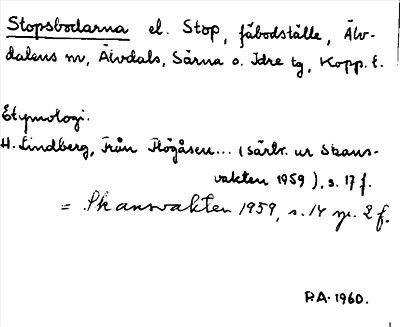 Stopsbodarna el. Stop, fäbodställe, Älv-
dalens m, Älvdals, Särna o. Idre tg, Kopp. l.
Etymologi.
H. Lindberg, Från Högåsen... (särtr. ur Skans-
vakten 1959), s. 17 f.
= Skansvakten 1959, s. 14 sp. 2 f.
P.A. 1960.